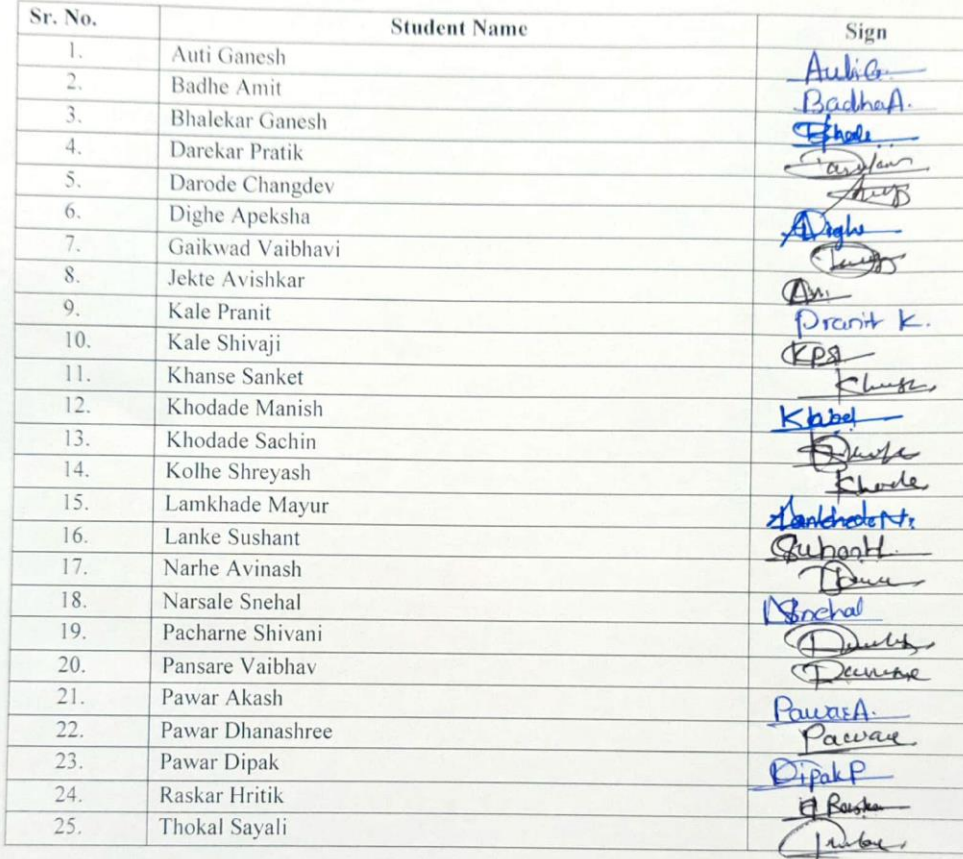 Sr. No. Student Name Sign
1. Auti Ganesh Auti G.
2. Badhe Amit BadheA.
3. Bhalekar Ganesh
4. Darekar Pratik
5. Darode Changdev
6. Dighe Apeksha ADighe
7. Gaikwad Vaibhavi
8. Jekte Avishkar
9. Kale Pranit Pranit K.
10. Kale Shivaji KPS
11. Khanse Sanket
12. Khodade Manish
13. Khodade Sachin
14. Kolhe Shreyash
15. Lamkhade Mayur
16. Lanke Sushant
17. Narhe Avinash
18. Narsale Snehal NSnehal
19. Pacharne Shivani
20. Pansare Vaibhav
21. Pawar Akash PawarA.
22. Pawar Dhanashree Pawar
23. Pawar Dipak DipakP
24. Raskar Hritik
25. Thokal Sayali